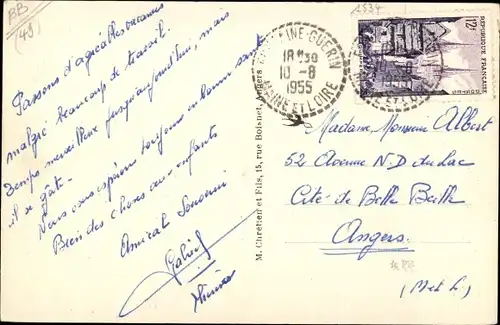 BB
(49)
Passons d'agréables vacances
malgré beaucoup de travail.
Temps merveilleux jusqu'aujourd'hui, mais
il se gâte.
Nous vous espérons toujours en bonne santé
Bien des choses aux enfants
Amical Souvenir
M. Chrétien et Fils, 15, rue Boisnet, Angers
INE-GUÉRIN
18H30
10-8
1955
MAINE ET LOIRE
2534
12F
REPUBLIQUE FRANÇAISE
Madame, Monsieur Albert
52 Avenue N.D du Lac
Cité de Belle Beille
Angers
(M et L.)